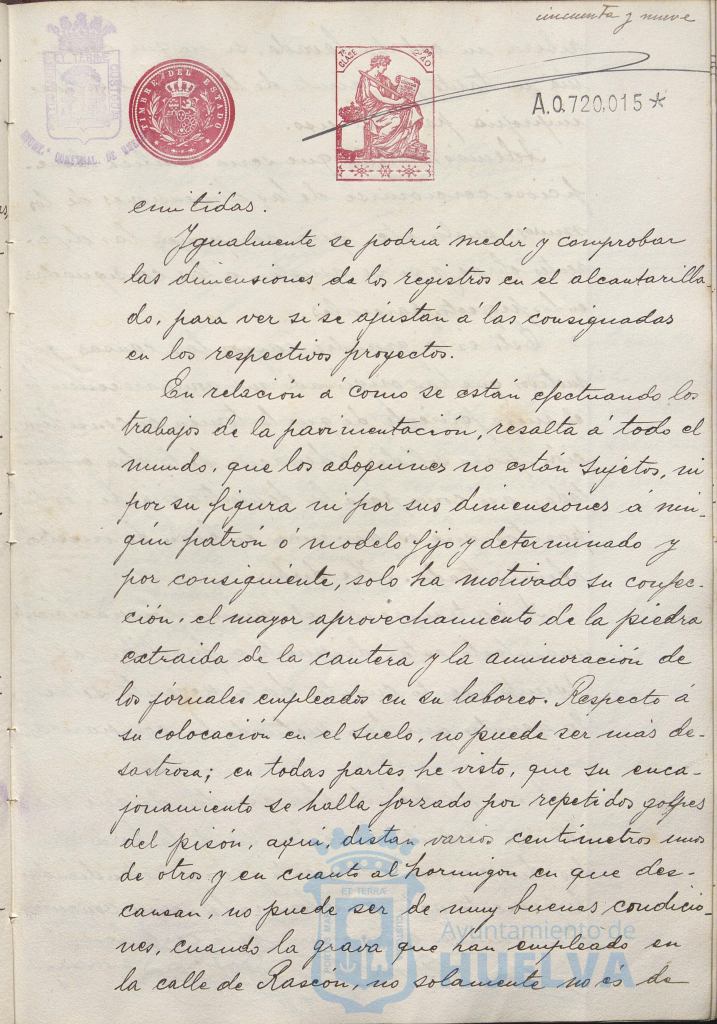 cincuenta y nueve
TIMBRE DEL ESTADO
7ª CLASE
A.0.720,015*
emitidas.
Igualmente se podría medir y comprobar
las dimensiones de los registros en el alcantarilla-
do, para ver si se ajustan á las consignadas
en los respectivos proyectos.
En relación á como se están efectuando los
trabajos de la pavimentación, resalta á todo el
mundo, que los adoquines no están sujetos, ni
por su figura ni por sus dimensiones á nin-
gún patrón ó modelo fijo y determinado y
por consiguiente, solo ha motivado su confec-
ción, el mayor aprovechamiento de la piedra
extraida de la cantera y la aminoración de
los jornales empleados en su laboreo. Respecto á
su colocación en el suelo, no puede ser más de-
sastrosa; en todas partes he visto, que su enca-
jonamiento se halla forzado por repetidos golpes
del pisón, aquí, distan varios centímetros unos
de otros y en cuanto al hormigon en que des-
cansan, no puede ser de muy buenas condicio-
nes, cuando la grava que han empleado en
la calle de Rascón, no solamente no és de
Ayuntamiento de
HUELVA